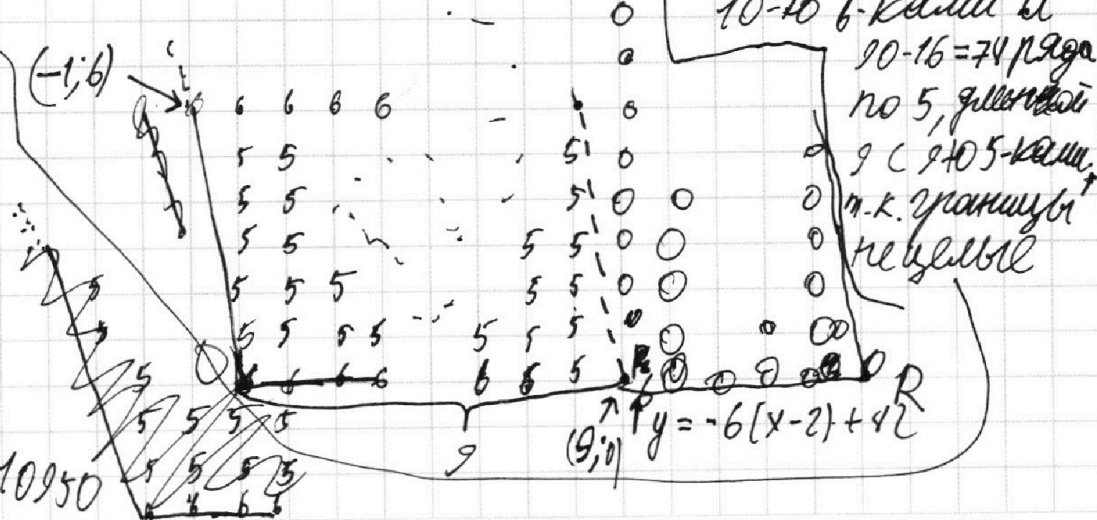 10-ю 6-ками и
90-16=74 ряда
по 5, длиной
9 с 9-ю 5-ками,
т.к. границы
нецелые
(-1;6)
6 6 6 6
5 5 5
5 5 5
5 5 5 5
5 5 5 5 5
5 5 5 5 5 5 5
6 6 6 6 6 6 5
R
9
(9;0)
y = -6(x-2)+42
5
5
5
5 5 5 5
5 5 5 5
6 6 6 6
10950